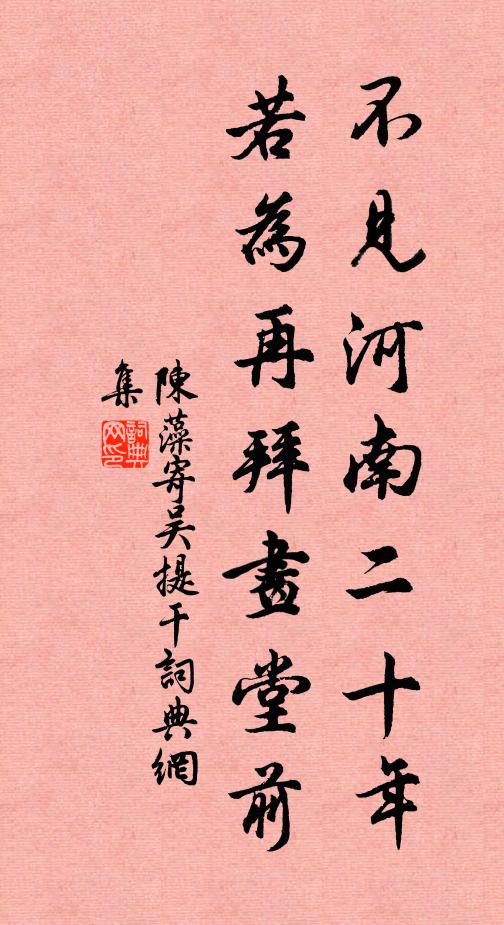 不見河南二十年
若為再拜畫堂前
陳藻寄吴提干詞典網
集
詞典
网印